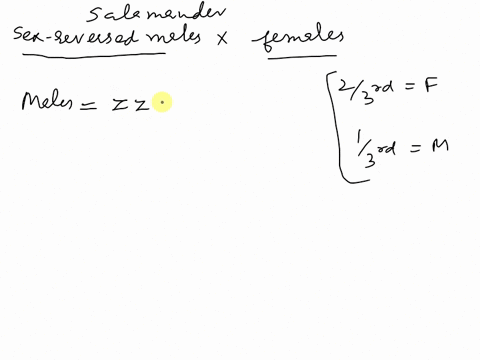 Salamander
Sex-reversed males x females
2/3rd = F
Males = ZZ
1/3rd = M